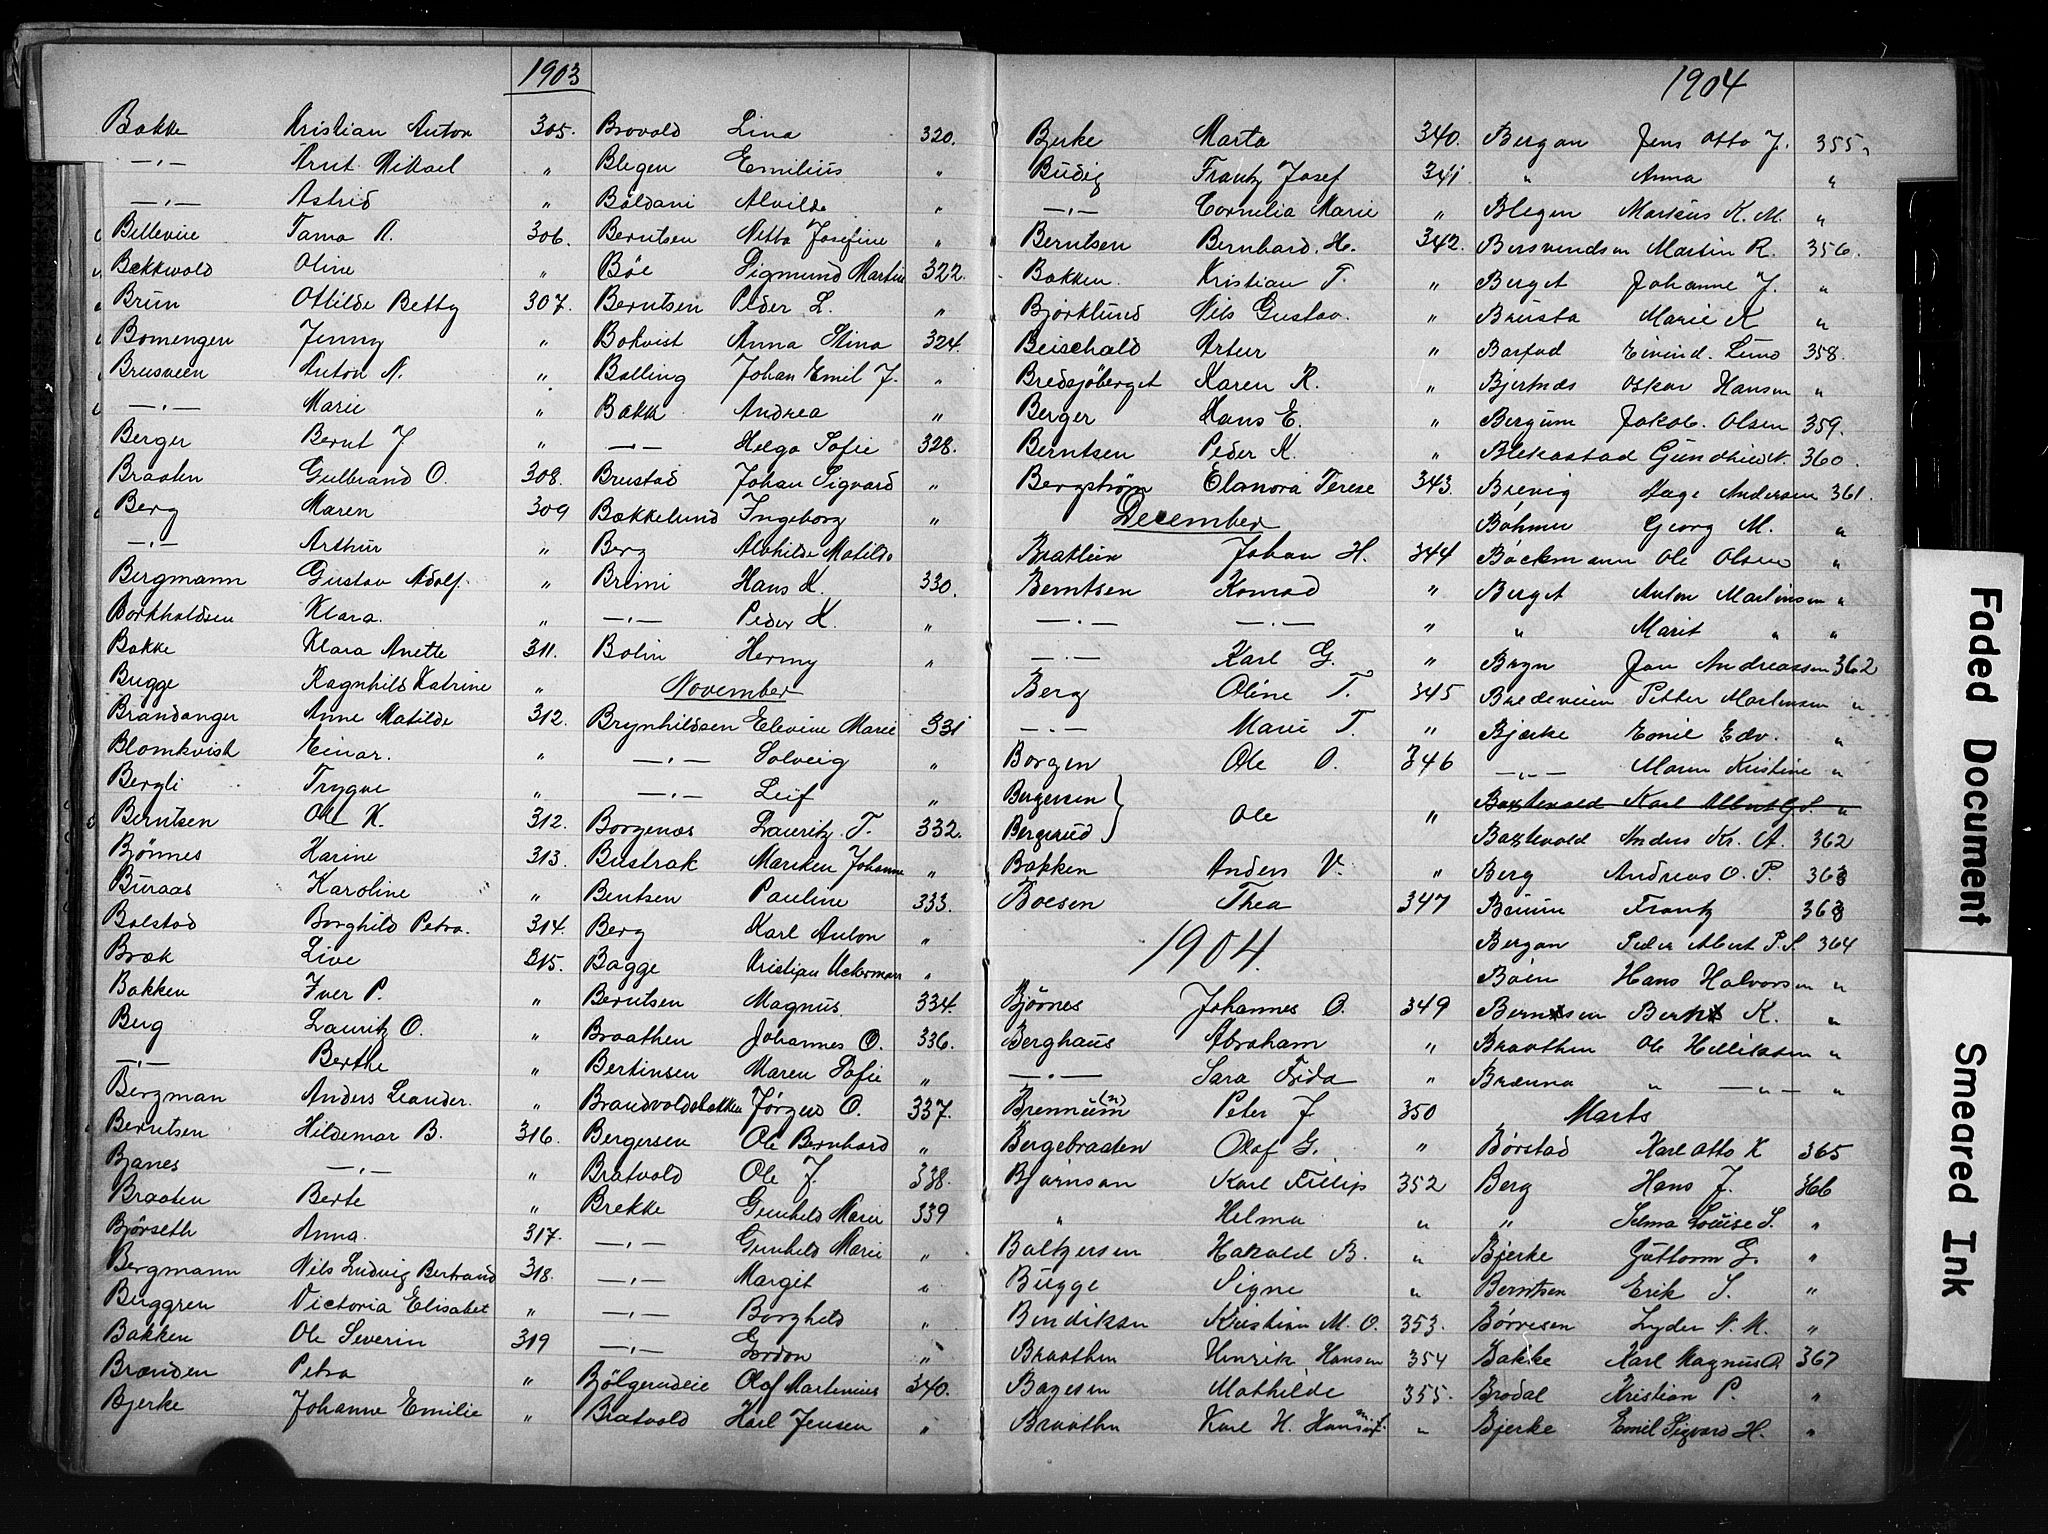 1903
Bakke Kristian Anton 305.
—„— Arnt Mikael „
—„— Astrid „
Belleviie Tama A. 306.
Bekkvold Oline „
Brun Otilde Betty 307.
Bomengen Jenny „
Brusveen Anton N. „
—„— Marie „
Berger Bernt J „
Braaten Gulbrand O. 308.
Berg Maren 309
—„— Arthur „
Bergmann Gustav Adolf. „
Bortholdsen Klara. „
Bakke Klara Anette 311.
Bugge Ragnhild Katrine „
Brandanger Anne Matilde 312.
Blomkvist Einar. „
Bergli Trygve „
Berntsen Ole K. 312.
Bjönnes Karine 313.
Buraas Karoline „
Bolstad Borghild Petra. 314.
Bræk Live 315.
Bakken Iver P. „
Berg Lauritz O. „
—„— Berthe „
Bergman Anders Leander. „
Berntsen Hildemar B. 316.
Bjanes —„— „
Braaten Berte „
Björseth Anna. 317.
Bergmann Nils Ludvig Bertrand 318.
Berggren Victoria Elisabet „
Bakken Ole Severin 319
Brænden Petra „
Bjerke Johanne Emilie „
Brovold Lina 320.
Blegen Emilius „
Böldani Alvilde „
Berntsen Netta Josefine „
Böe Sigmund Martin 322.
Berntsen Peder L. „
Bokvist Anna Stina 324.
Balling Johan Emil J. „
Bakk Andrea „
—„— Helga Sofie 328.
Brustad Johan Sigvard „
Bækkelund Ingeborg „
Berg Alvhilde Matilde
Brimi Hans K. 330.
—„— Peder K. „
Bolin Hermy „
November
Brynhildsen Elevine Marie 331
—„— Solveig „
—„— Leif „
Borgenæs Lauritz T. 332.
Bustrak Mariken Johanne „
Bentsen Pauline 333.
Berg Karl Anton „
Bagge Kristian Ackerman „
Berntsen Magnus. 334.
Braathen Johannes O. 336.
Bertinsen Maren Sofie „
Brandvoldsbakken Jörgen O. 337.
Bergersen Ole Bernhard „
Bratvold Ole J. 338.
Brekke Gunhild Marie 339
—„— Gunhild Marie „
—„— Margit „
—„— Borghild „
—„— Gordon „
Bjölgerudeie Olaf Martinius 340.
Bratvold Karl Jensen „
Bjerke Marta 340.
Budig Frantz Josef 341
—„— Cornelia Marie „
Berntsen Bernhard. H. 342.
Bakken. Kristian T. „
Björklund Nils Gustav. „
Beischald Artur „
Bredsjöberget Karen K. „
Berger Hans E. „
Berntsen Peder K. „
Bergström Elanora Terese 343.
December
Brattlien Johan H. 344
Berntsen Konrad „
—„— —„— „
—„— Karl G. „
Berg Oline T. 345
—„— Marie T. „
Borgen Ole O. 346
Bergersen }
Bergerud } Ole „
Bakken Anders V. „
Boesen Thea 347
1904.
Bjørnes Johannes O. 349
Berghaus Abraham „
—„— Sara Frida „
Brennum (n) Peter J 350
Bergebraaten Olaf G. „
Bjørnson Karl Fillip 352
„ Helma „
Boltzersen Harald B. „
Bugge Signe „
Bendiksen Kristian M. O. 353.
Braathen Henrik Hansen 354
Bagesen Mathilde 355.
Braathen Karl H. „
1904
Bergan Jens Otto J. 355
„ Anna „
Blegen Markus K. M. „
Bersvendsen Martin R. 356.
Berget Johanne J. „
Brusta Marie K „
Barfod Eivind. Lund 358.
Bjertnæs Oskar Hansen „
Bergum Jakob. Olsen 359.
Blekastad Gundhild N. 360.
Brevig Aage Andersen 361.
Böhmer Georg M. „
Bäckmann Ole Olsen „
Berget Anton Martinsen „
„ Marit „ „
Bryn Jon Andreassen 362
Bredeveien Petter Martinsen „
Bjærke Emil Edv. „
—„— Maren Kristine „
Baxtevald Karl Albert G. S. „
Baxtevald Anders Kr. A. 362
Berg Andreas O. P. 363
Beuum Frantz 363
Bergan Peder Albert P. S. 364
Böen Hans Halvorsen „
Berntsen Bernt K. „
Braathen Ole Helliksen „
Brænna „ —„— „
Marts
Børstad Karl Otto K 365
Berg Hans J. 366
„ Selma Louise S. „
Bjerke Guttorm G. „
Berntsen Erik S. „
Børresen Lyder N. M. „
Bakke Karl Magnus O. 367
Brodal Kristian P. „
Bjerke Emil Sigvard H. „
Faded Document
Smeared Ink